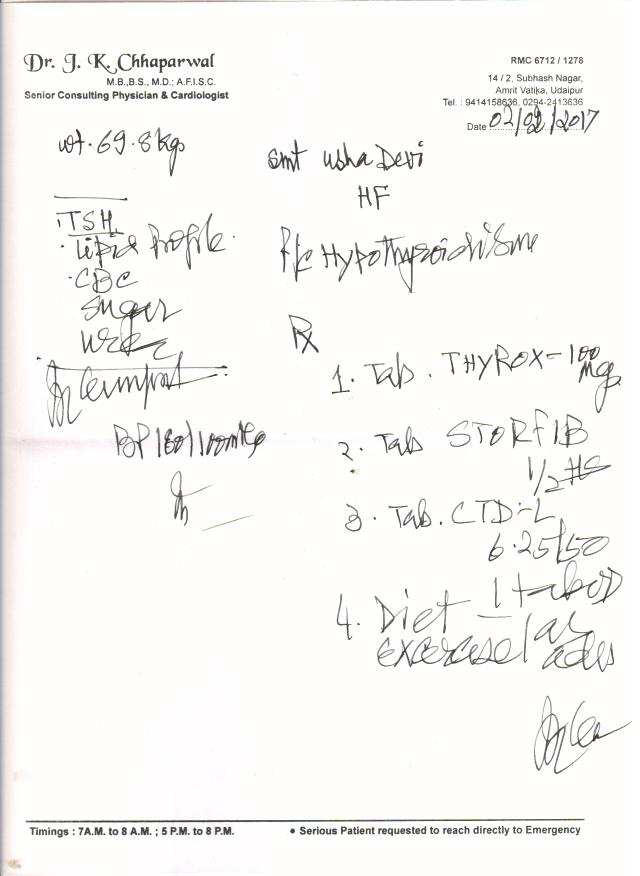 Dr. J. K. Chhaparwal
M.B.,B.S., M.D.; A.F.I.S.C.
Senior Consulting Physician & Cardiologist
RMC 6712 / 1278
14 / 2, Subhash Nagar,
Amrit Vatika, Udaipur
Tel. : 9414158636, 0294-2413636
Date 02/02/2017
wt. 69.8 kg
smt Usha Devi
HF
TSH
Lipid Profile
CBC
Sugar
Urea
F/c Hypothyroidisme
Rx
BP 180/100mmHg
1. Tab. THYROX - 100 mgs
2. Tab STORFIB
1/2 HS
3. Tab. CTD-L
6.25/50
1 tab OD
4. Diet
exercise / as
Timings : 7A.M. to 8 A.M. ; 5 P.M. to 8 P.M.
• Serious Patient requested to reach directly to Emergency